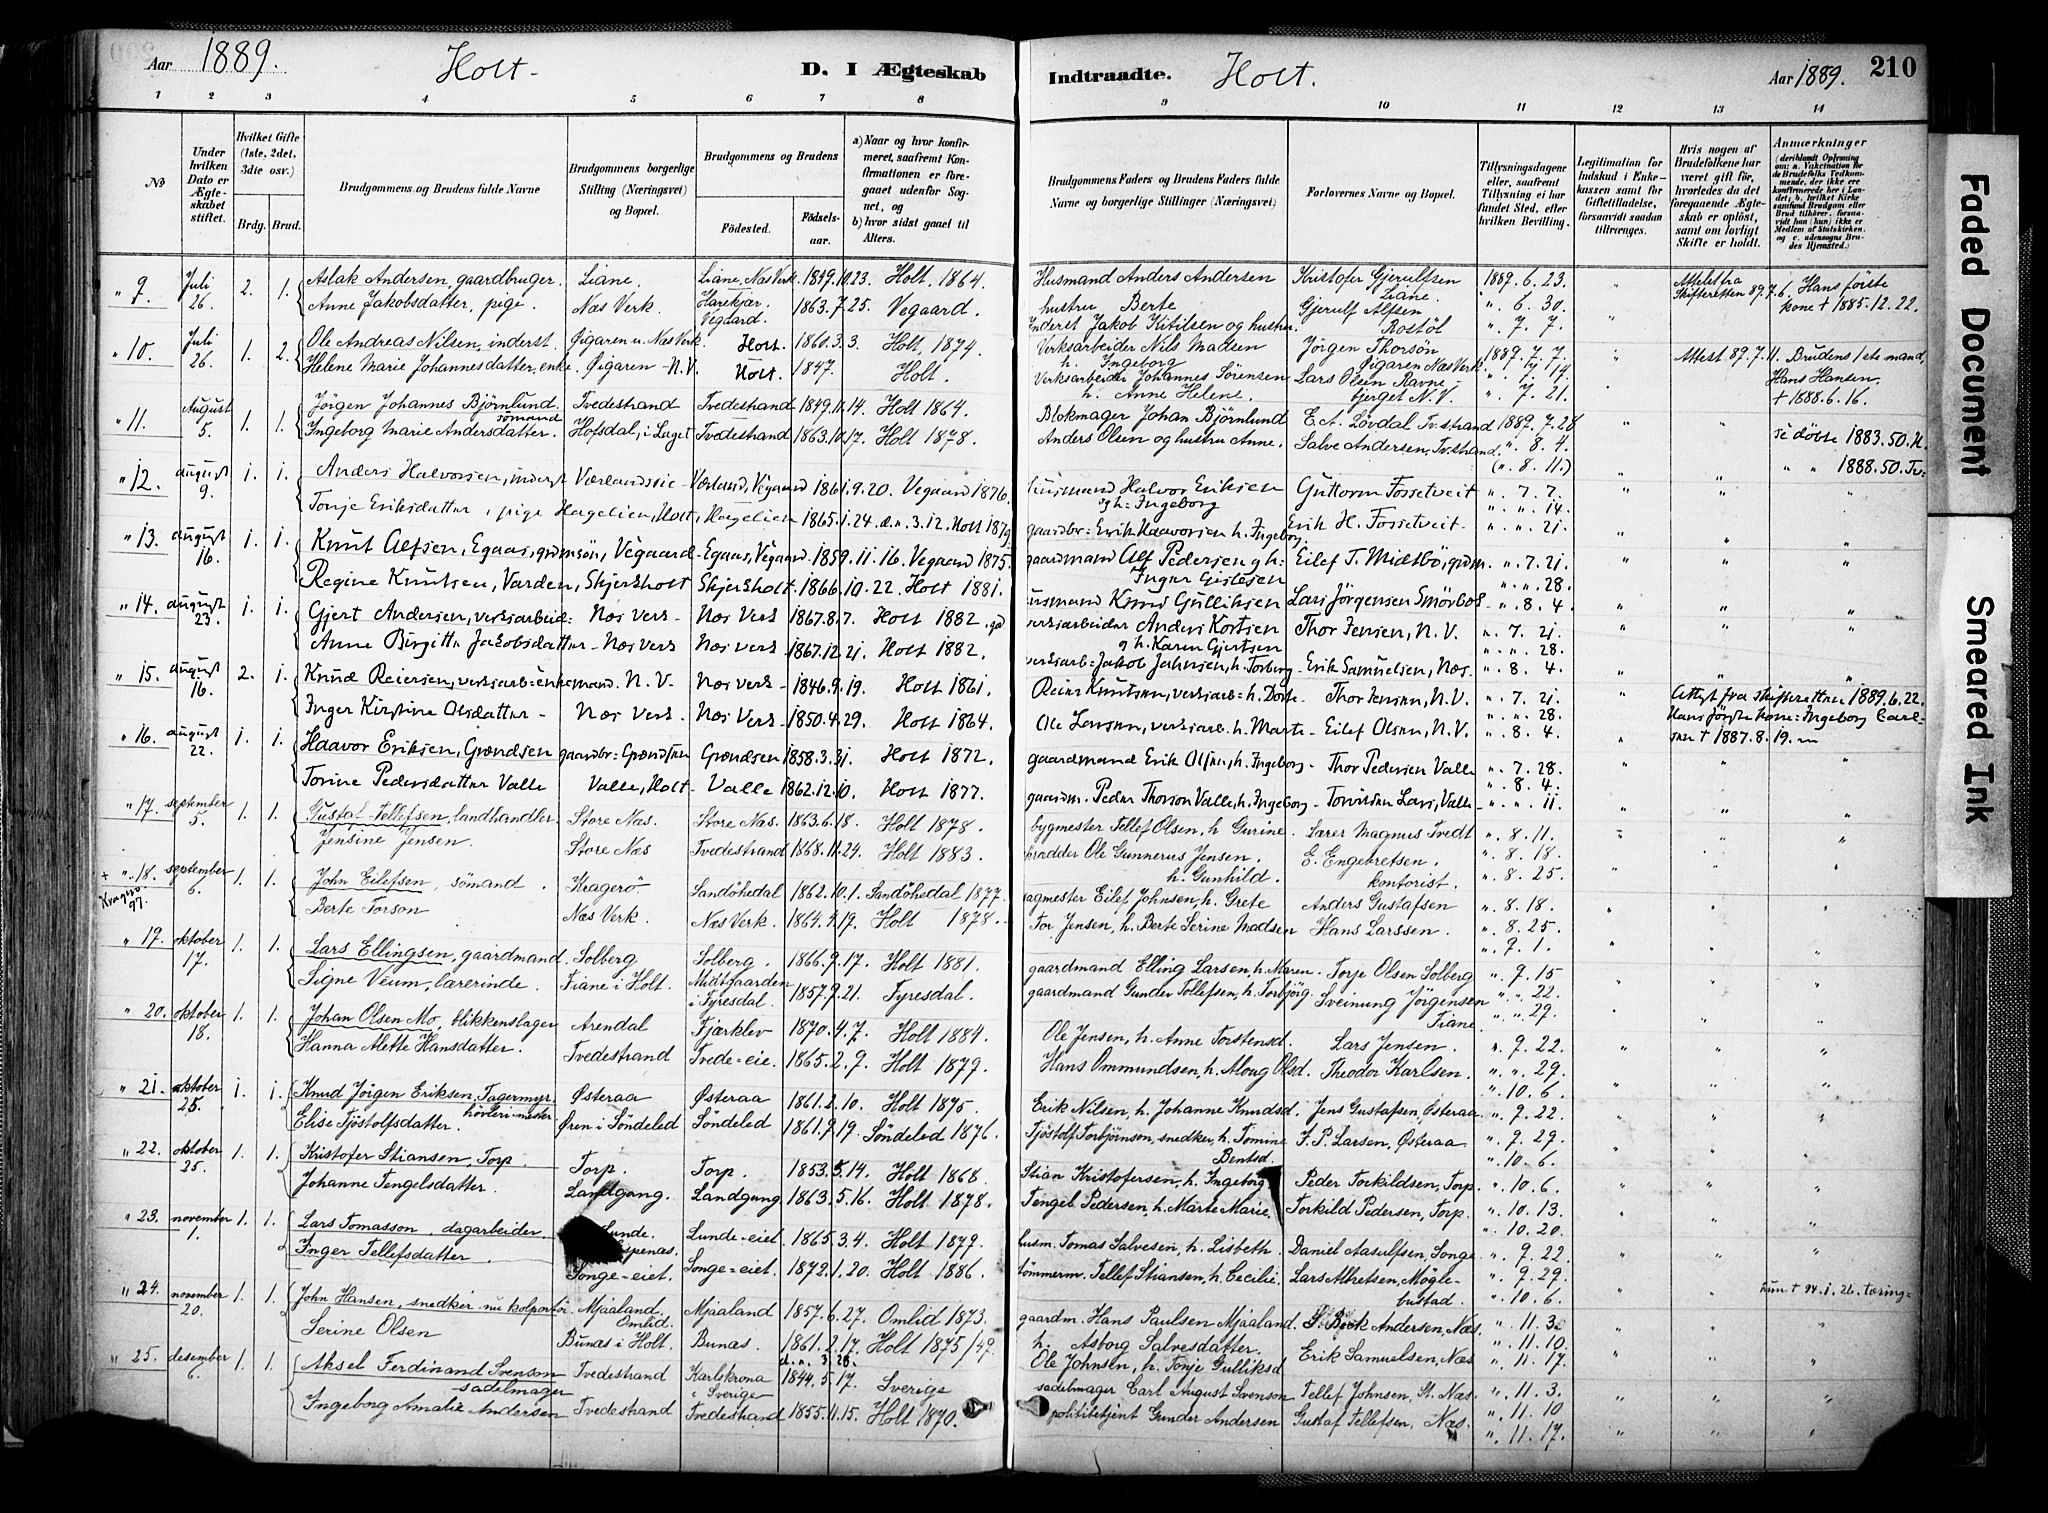 Aar 1889. Holt. D. I Ægteskab Indtraadte. Holt. Aar 1889. 210
1 2 3 4 5 6 7 8 9 10 11 12 13 14
No
Under hvilken Dato er Ægteskabet stiftet.
Hvilket Gifte (1ste, 2det, 3die osv.)
Brdg. Brud.
Brudgommens og Brudens fulde Navne
Brudgommens borgerlige Stilling (Næringsvei) og Bopæl.
Brudgommens og Brudens
Födested. Födselsaar.
a) Naar og hvor konfirmeret, saafremt Konfirmationen er foregaaet udenfor Sognet, og
b) hvor sidst gaaet til Alters.
Brudgommens Faders og Brudens Faders fulde Navne og borgerlige Stillinger (Næringsvei)
Forlovernes Navne og Bopæl.
Tillysningsdagene eller, saafremt Tillysning ei har fundet Sted, efter hvilken Bevilling.
Legitimation for Indskud i Enkekassen samt for Giftetilladelse, forsaavidt saadan tiltrænges.
Hvis nogen af Brudefolkene har været gift før, hvorledes da det foregaaende Ægteskab er oplöst, samt om lovligt Skifte er holdt.
Anmærkninger
" 9. Juli 26. 2. 1. Aslak Andersen, gaardbruger. Liane. Liane, Næs Verk. 1849.10.23. Holt. 1864. Husmand Anders Andersen Kristofer Gjerulfsen Liane. 1889. 6. 23. Attest fra Skifteretten 89.7.6. Hans første kone † 1885.12.22.
Anne Jakobsdatter, pige. Næs Verk. Harekjær Vegaard. 1863.7.25. Vegaard. hustru Berte Gjerulf Alfsen Rostöl ". 6. 30.
Inderst Jakob Kitilsen og hustru. ". 7. 7.
" 10. Juli 26. 1. 2. Ole Andreas Nilsen, inderst. Øigaren u. Næs Verk. Holt. 1860.3.3. Holt, 1874. Verksarbeider Nils Madsen h. Ingeborg Jörgen Thorsön Øigaren Næs Verk. 1889. 7. 7. Attest 89.7.11. Brudens 1ste mand, Hans Hansen. † 1888.6.16.
Helene Marie Johannesdatter, enke. Øigaren N.V. Holt. 1847. Holt. Verksarbeider Johannes Sörensen h. Anne Helene. Lars Olsen Ravnebjerget N.V. ". 7. 14. ". 7. 21.
" 11. August 5. 1. 1. Jörgen Johannes Bjørnlund. sömand Tvedestrand Tvedestrand 1849.11.14. Holt 1864. Blokmager Johan Bjørnlund E. A. Lövdal Tv.strand 1889. 7. 28
Ingeborg Marie Andersdatter. Hofsdal, i Laget Tvedestrand 1863.10.17. Holt 1878. Anders Olsen og hustru Anne. Salve Andersen, Tv.strand. ". 8. 4. (". 8. 11.) se döbte 1883.50.H. " " 1888.50.Tv.
" 12. august 9. 1. 1. Anders Halvorsen, inderst Værland, Vegaard 1861.9.20. Vegaard 1876. Husmand Halvor Eriksen og h: Ingeborg Guttorm Fossetveit ". 7. 7. ". ". 14.
Tonje Eriksdatter, pige Hagelien, Holt, Hagelien 1865.1.24. d.n. 3.12. Holt 1879. gaardbr: Erik Haavorsen h. Ingeborg. Erik H. Fossetveit ". ". 21.
" 13. august 16. 1. 1. Knut Alfsen, Egaas, grdmsön, Vegaard Egaas, Vegaard 1859.11.16. Vegaard 1875. gaardmand Alf Pedersen og h: Eilef T. Midtbö, grdm. ". 7. 21. ". ". 28.
Regine Knutsen, Varden, Skjersholt Skjersholt. 1866.10.22. Holt 1881. Husmand Knud Gulliksen Lars Jörgensen Smörbos ". 8. 4.
" 14. august 23. 1. 1. Gjert Andersen, verksarbeid: Næs Verk Næs Verk 1867.8.7. Holt 1882. verksarbeider Anders Kortsen og h. Karen Gjertsen Thor Jensen, N.V. ". 7. 21. ". ". 28.
Anne Birgitte Jakobsdatter Næs Verk Næs Verk 1867.12.21. Holt 1882. verksarb: Jakob Jahnsen, h. Torberg Erik Samuelsen, Næs ". 8. 4.
" 15. august 16. 2. 1. Knud Reiersen, verksarb: enkemand. N.V. Næs verk 1846.9.19. Holt 1861. Reier Knutsen, verksarb: h. Dorte Thor Jensen, N.V. ". 7. 21. ". ". 28. Attest fra skifteretten 1889.6.22. Hans første kone: Ingeborg Carlsen † 1887.8.19.
Inger Kirstine Olsdatter Næs Verk Næs Verk 1850.4.29. Holt 1864. Ole Larsen, verksarb. h. Marte Eilef Olsen, N.V. ". 8. 4.
" 16. august 22. 1. 1. Haavor Eriksen, Grændsen gaardbr: Grændsen Grændsen 1858.3.31. Holt 1872. gaardmand Erik Olsen, h. Ingeborg Thor Pedersen Valle ". 7. 28. ". 8. 4.
Torine Pedersdatter Valle Valle, Holt Valle 1862.12.10. Holt 1877. gaardm. Peder Thorson Valle, h. Ingeborg ". ". 11.
" 17. september 5. 1. 1. Gustaf Tellefsen, landhandler. Store Næs. Store Næs. 1863.6.18. Holt 1878. bygmester Tellef Olsen, h Gurine. Magnus Tvedt ". 8. 11. ". 8. 18.
Jensine Jensen. Store Næs Tvedestrand 1868.11.24. Holt 1883. skrædder Ole Gunnerus Jensen. h. Gunhild. E. Engebretsen. kontorist. ". 8. 25.
+ " 18. Kragerø 97. september 6. 1. 1. John Eilefsen, sömand. Kragerö Sandöhedal 1862.10.1. Sandöhedal 1877. sagmester Eilef Johnsen, h. Grete Anders Gustafsen ". 8. 18.
Berte Torson Næs Verk. Næs Verk 1864.4.19. Holt 1878. Tor Jensen, h. Berte Serine Madsen Hans Larssen. ". 8. 25. ". 9. 1.
" 19. oktober 17. 1. 1. Lars Ellingsen, gaardmand. Solberg Solberg. 1866.9.17. Holt 1881. gaardmand Elling Larsen, h. Maren. Torje Olsen Solberg ". 9. 15
Signe Veum, lærerinde. Fiane i Holt. Midtgaarden i Tyresdal. 1857.9.21. Tyresdal. gaardmand Gunder Tollefsen, h. Torbjörg. Sveinung Jörgensen Fiane. ". ". 22. ". ". 29.
" 20. oktober 18. 1. 1. Johan Olsen Mo, blikkenslager Arendal Fjærklev 1870.4.7. Holt 1884. Ole Jensen, h. Anne Torstensd. Lars Jensen. ". 9. 22.
Hanna Alette Hansdatter. Tvedestrand Tvede=eie. 1865.2.9. Holt 1879. Hans Ommundsen, h. Aloug Olsd. Theodor Karlsen. ". ". 29. ". 10. 6.
" 21. oktober 25. 1. 1. Knud Jörgen Eriksen, Fagermyr. Østeraa Østeraa 1861.2.10. Holt 1875. Erik Nilsen, h. Johanne Knudsd. Jens Gustafsen, Østeraa ". 9. 22.
Elise Tjöstolfsdatter. Øren i Söndeled Söndeled 1861.9.19. Söndeled 1876. Tjöstolf Torbjörnson, snedker, h. Tomine Bentsd. F. P. Larsen, Østeraa ". 9. 29. ". 10. 6.
" 22. oktober 25. 1. 1. Kristofer Stiansen, Torp. Torp. Torp. 1853.5.14. Holt 1868. Stian Kristofersen, h. Ingeborg Peder Torkildsen, Torp. ". 10. 6.
Johanne Tengelsdatter. Landgang. Landgang 1863.5.16. Holt 1878. Tengel Pedersen, h. Marte Marie. Torkild Pedersen, Torp. ". 10. 13. ". 10. 20.
" 23. november 1. 1. 1. Lars Tomasson, dagarbeider Lunde. Lunde-eiet 1865.3.4. Holt 1879. husm. Tomas Salvesen, h. Lisbeth. Daniel Aasulfsen, Songe ". 9. 22.
Inger Tellefsdatter Songe-eiet. Songe=eiet. 1872.1.20. Holt 1886. tömmerm. Tellef Stiansen, h. Cecilie. Lars Athetsen, Möglebustad. ". 9. 29. ". 10. 6.
" 24. november 20. 1. 1. John Hansen, snedker nu kolportör Mjaaland. Omlid. Mjaaland 1857.6.27. Omlid 1873. gaardm. Hans Paulsen Mjaaland h. Asborg Salvesdatter. Andersen, Næs. ". 11. 3. ". 11. 10. hun † 94.1.26. tæring
Serine Olsen Bunæs i Holt. Bunæs. 1861.2.17. Holt 1875/49. Ole Johnsen, h. Tonje Gulliksd Erik Samuelsen, Næs ". 11. 17.
" 25. desember 6. 1. 1. Aksel Ferdinand Svenson sadelmager Tvedestrand Karlskrona i Sverige 1844.5.17. Sverige sadelmager Carl August Svenson Tellef Johnsen, St. Næs. ". 11. 3.
Ingeborg Amalie Andersen Tvedestrand Tvedestrand 1855.11.15. Holt 1870. polititetjent Gunder Andersen Gustaf Tellefsen, Næs. ". 11. 10 ". 11. 17.
Faded Document
Smeared Ink